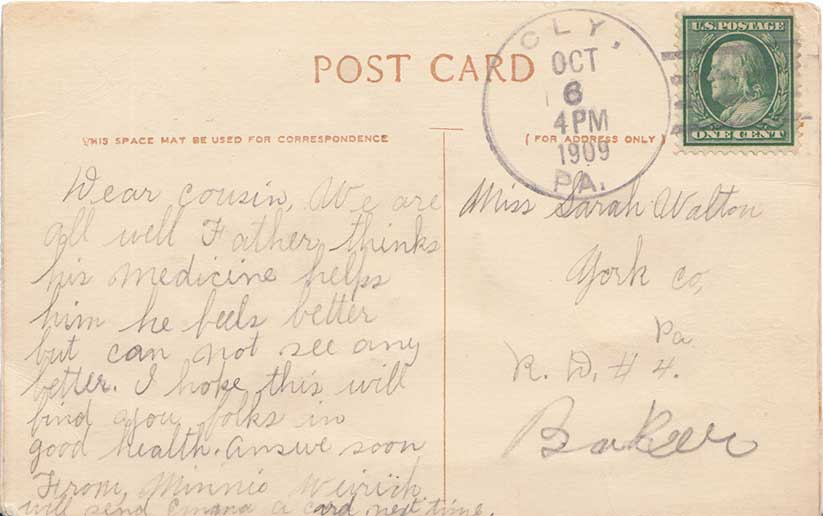 POST CARD
CLY,
OCT
6
4 PM
1909
PA.
U.S. POSTAGE
ONE CENT
THIS SPACE MAY BE USED FOR CORRESPONDENCE
(FOR ADDRESS ONLY)
Dear cousin, We are
all well Father thinks
his medicine helps
him he feels better
but can not see any
better. I hope this will
find you folks in
good health. answe soon
From, Minnie Weirich
will send a card next time.
Miss Sarah Walton
York co,
Pa
R. D. # 4.
Baker